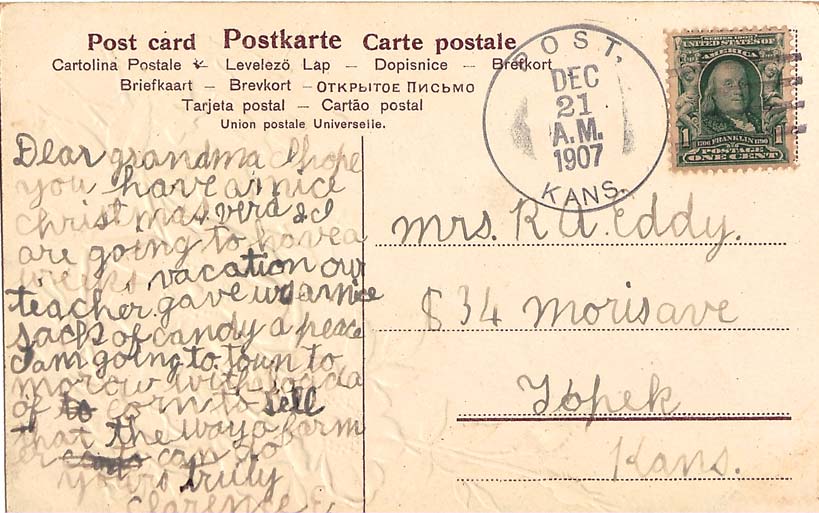 Post card Postkarte Carte postale
Cartolina Postale – Levelező Lap – Dopisnice – Brefkort
Briefkaart – Brevkort – Открытое Письмо
Tarjeta postal – Cartão postal
Union postale Universelle.
POST,
DEC
21
A.M.
1907
KANS.
SERIES 1902
UNITED STATES OF
AMERICA
1706 FRANKLIN 1790
1
POSTAGE
ONE CENT
Dear grandma I hope
you have a nice
christmas vera & I
are going to have a
weeks vacation our
teacher gave us a nice
sack of candy a peace
I am going to town to
morow with
of to corn to sell
that the way a farm
er can do
yours truly
Clarence E.
mrs. R A. Eddy.
34 moris ave
Topek
Kans.